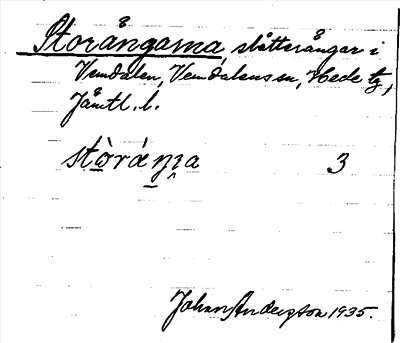 Storångarna, slåtterångar i
Vemdalen, Vemdalens sn, Hede tg,
Jämtl. l.
stò̱rá ṉi̭a 3
Johan Anderson 1935.